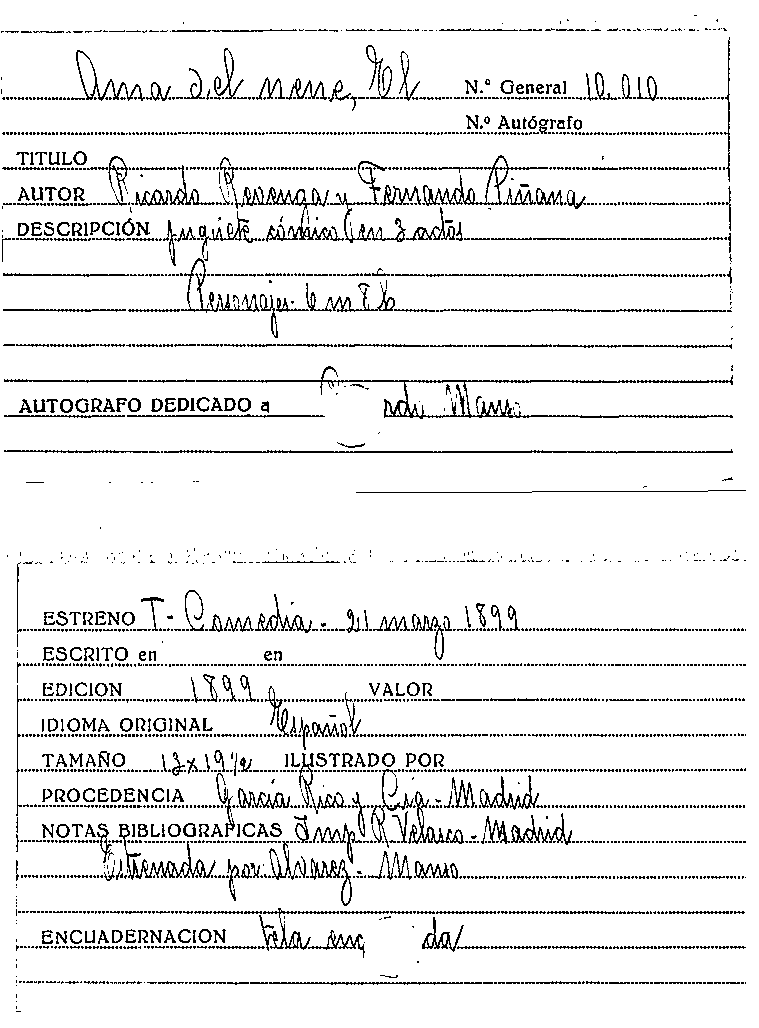 Ama del nene, El N.º General 10.010
N.º Autógrafo
TITULO
AUTOR Ricardo Revenga y Fernando Piñana
DESCRIPCIÓN juguete cómico en 3 actos
Personajes- 6 m 8 h
AUTOGRAFO DEDICADO a Manso
ESTRENO T- Comedia - 21 marzo 1899
ESCRITO en en
EDICION 1899 VALOR
IDIOMA ORIGINAL Español
TAMAÑO 13x19½ ILUSTRADO POR
PROCEDENCIA García Rico y Cía - Madrid
NOTAS BIBLIOGRAFICAS Imp R Velasco - Madrid
Estrenada por Alvarez - Manso
ENCUADERNACION tela